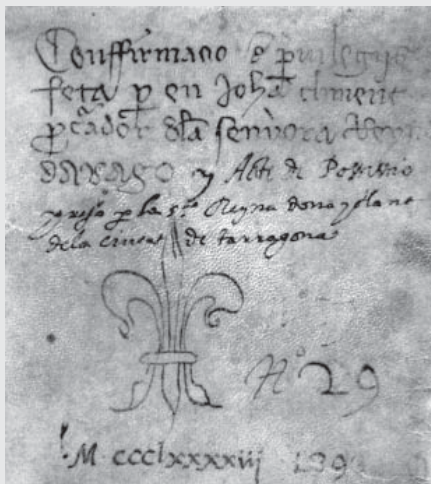 Conffirmacio de priuilegis
feta p en Johã climent
p̱cador dla senyora Reyna
darago y Acte de Possessio
presa p la s.ra Reyna dona yolant
dela ciutat de tarragona
N.o 29
M ccclxxxxiij 139